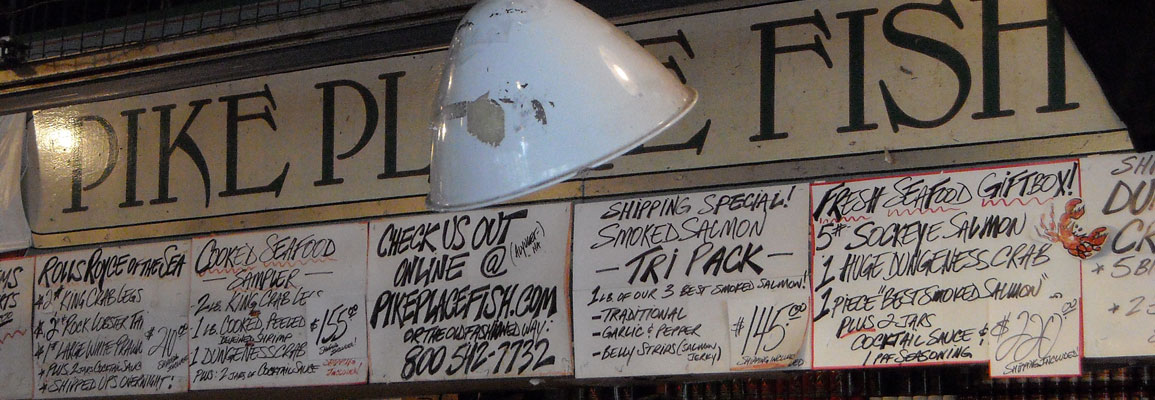 PIKE PL E FISH
ROLLS ROYCE OF THE SEA
2# KING CRAB LEGS
2# ROCK LOBSTER TAIL
1# LARGE WHITE PRAWN
PLUS 2 JARS COCKTAIL SAUCE
SHIPPED UPS OVERNIGHT!
COOKED SEAFOOD
SAMPLER
2 LB. KING CRAB LEGS
1 LB. COOKED, PEELED
DEVEINED SHRIMP
1 DUNGENESS CRAB
PLUS: 2 JARS OF COCKTAIL SAUCE
$155.00
SHIPPING INCLUDED
CHECK US OUT
ONLINE @ (ANYWAY!)
PIKEPLACEFISH.COM
OR THE OLD FASHIONED WAY:
800 542-7732
SHIPPING SPECIAL!
SMOKED SALMON
- TRI PACK -
1 LB. OF OUR 3 BEST SMOKED SALMON!
- TRADITIONAL
- GARLIC & PEPPER
- BELLY STRIPS (SALMON JERKY)
$145.00
SHIPPING INCLUDED
FRESH SEAFOOD GIFTBOX!
5# SOCKEYE SALMON
1 HUGE DUNGENESS CRAB
1 PIECE "BEST SMOKED SALMON"
PLUS 2 JARS
COCKTAIL SAUCE &
1 PPF SEASONING
$220.00
SHIPPING INCLUDED!
SHI
DU
CR
* 5 B